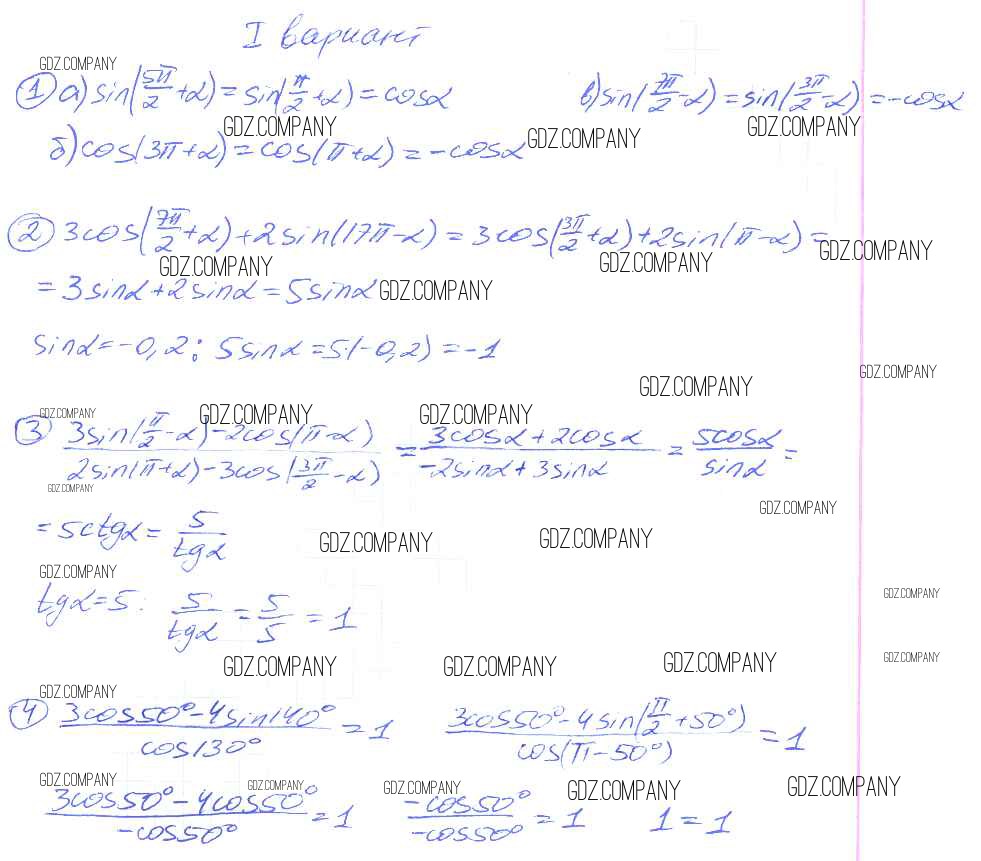 I вариант
GDZ.COMPANY
① а) sin(5π/2 + α) = sin(π/2 + α) = cosα в) sin(7π/2 - α) = sin(3π/2 - α) = -cosα
GDZ.COMPANY GDZ.COMPANY GDZ.COMPANY
б) cos(3π + α) = cos(π + α) = -cosα
② 3cos(7π/2 + α) + 2sin(17π - α) = 3cos(3π/2 + α) + 2sin(π - α) =
GDZ.COMPANY GDZ.COMPANY GDZ.COMPANY
= 3sinα + 2sinα = 5sinα GDZ.COMPANY
sinα = -0,2: 5sinα = 5(-0,2) = -1
GDZ.COMPANY GDZ.COMPANY
GDZ.COMPANY GDZ.COMPANY GDZ.COMPANY
③ (3sin(π/2 - α) - 2cos(π - α))/(2sin(π + α) - 3cos(3π/2 - α)) = (3cosα + 2cosα)/(-2sinα + 3sinα) = 5cosα/sinα =
GDZ.COMPANY GDZ.COMPANY
= 5ctgα = 5/tgα
GDZ.COMPANY GDZ.COMPANY
GDZ.COMPANY GDZ.COMPANY
tgα = 5: 5/tgα = 5/5 = 1
GDZ.COMPANY GDZ.COMPANY GDZ.COMPANY GDZ.COMPANY
GDZ.COMPANY
④ (3cos50° - 4sin140°)/cos130° = 1 (3cos50° - 4sin(π/2 + 50°))/cos(π - 50°) = 1
GDZ.COMPANY GDZ.COMPANY GDZ.COMPANY GDZ.COMPANY GDZ.COMPANY
(3cos50° - 4cos50°)/(-cos50°) = 1 -cos50°/-cos50° = 1 1 = 1